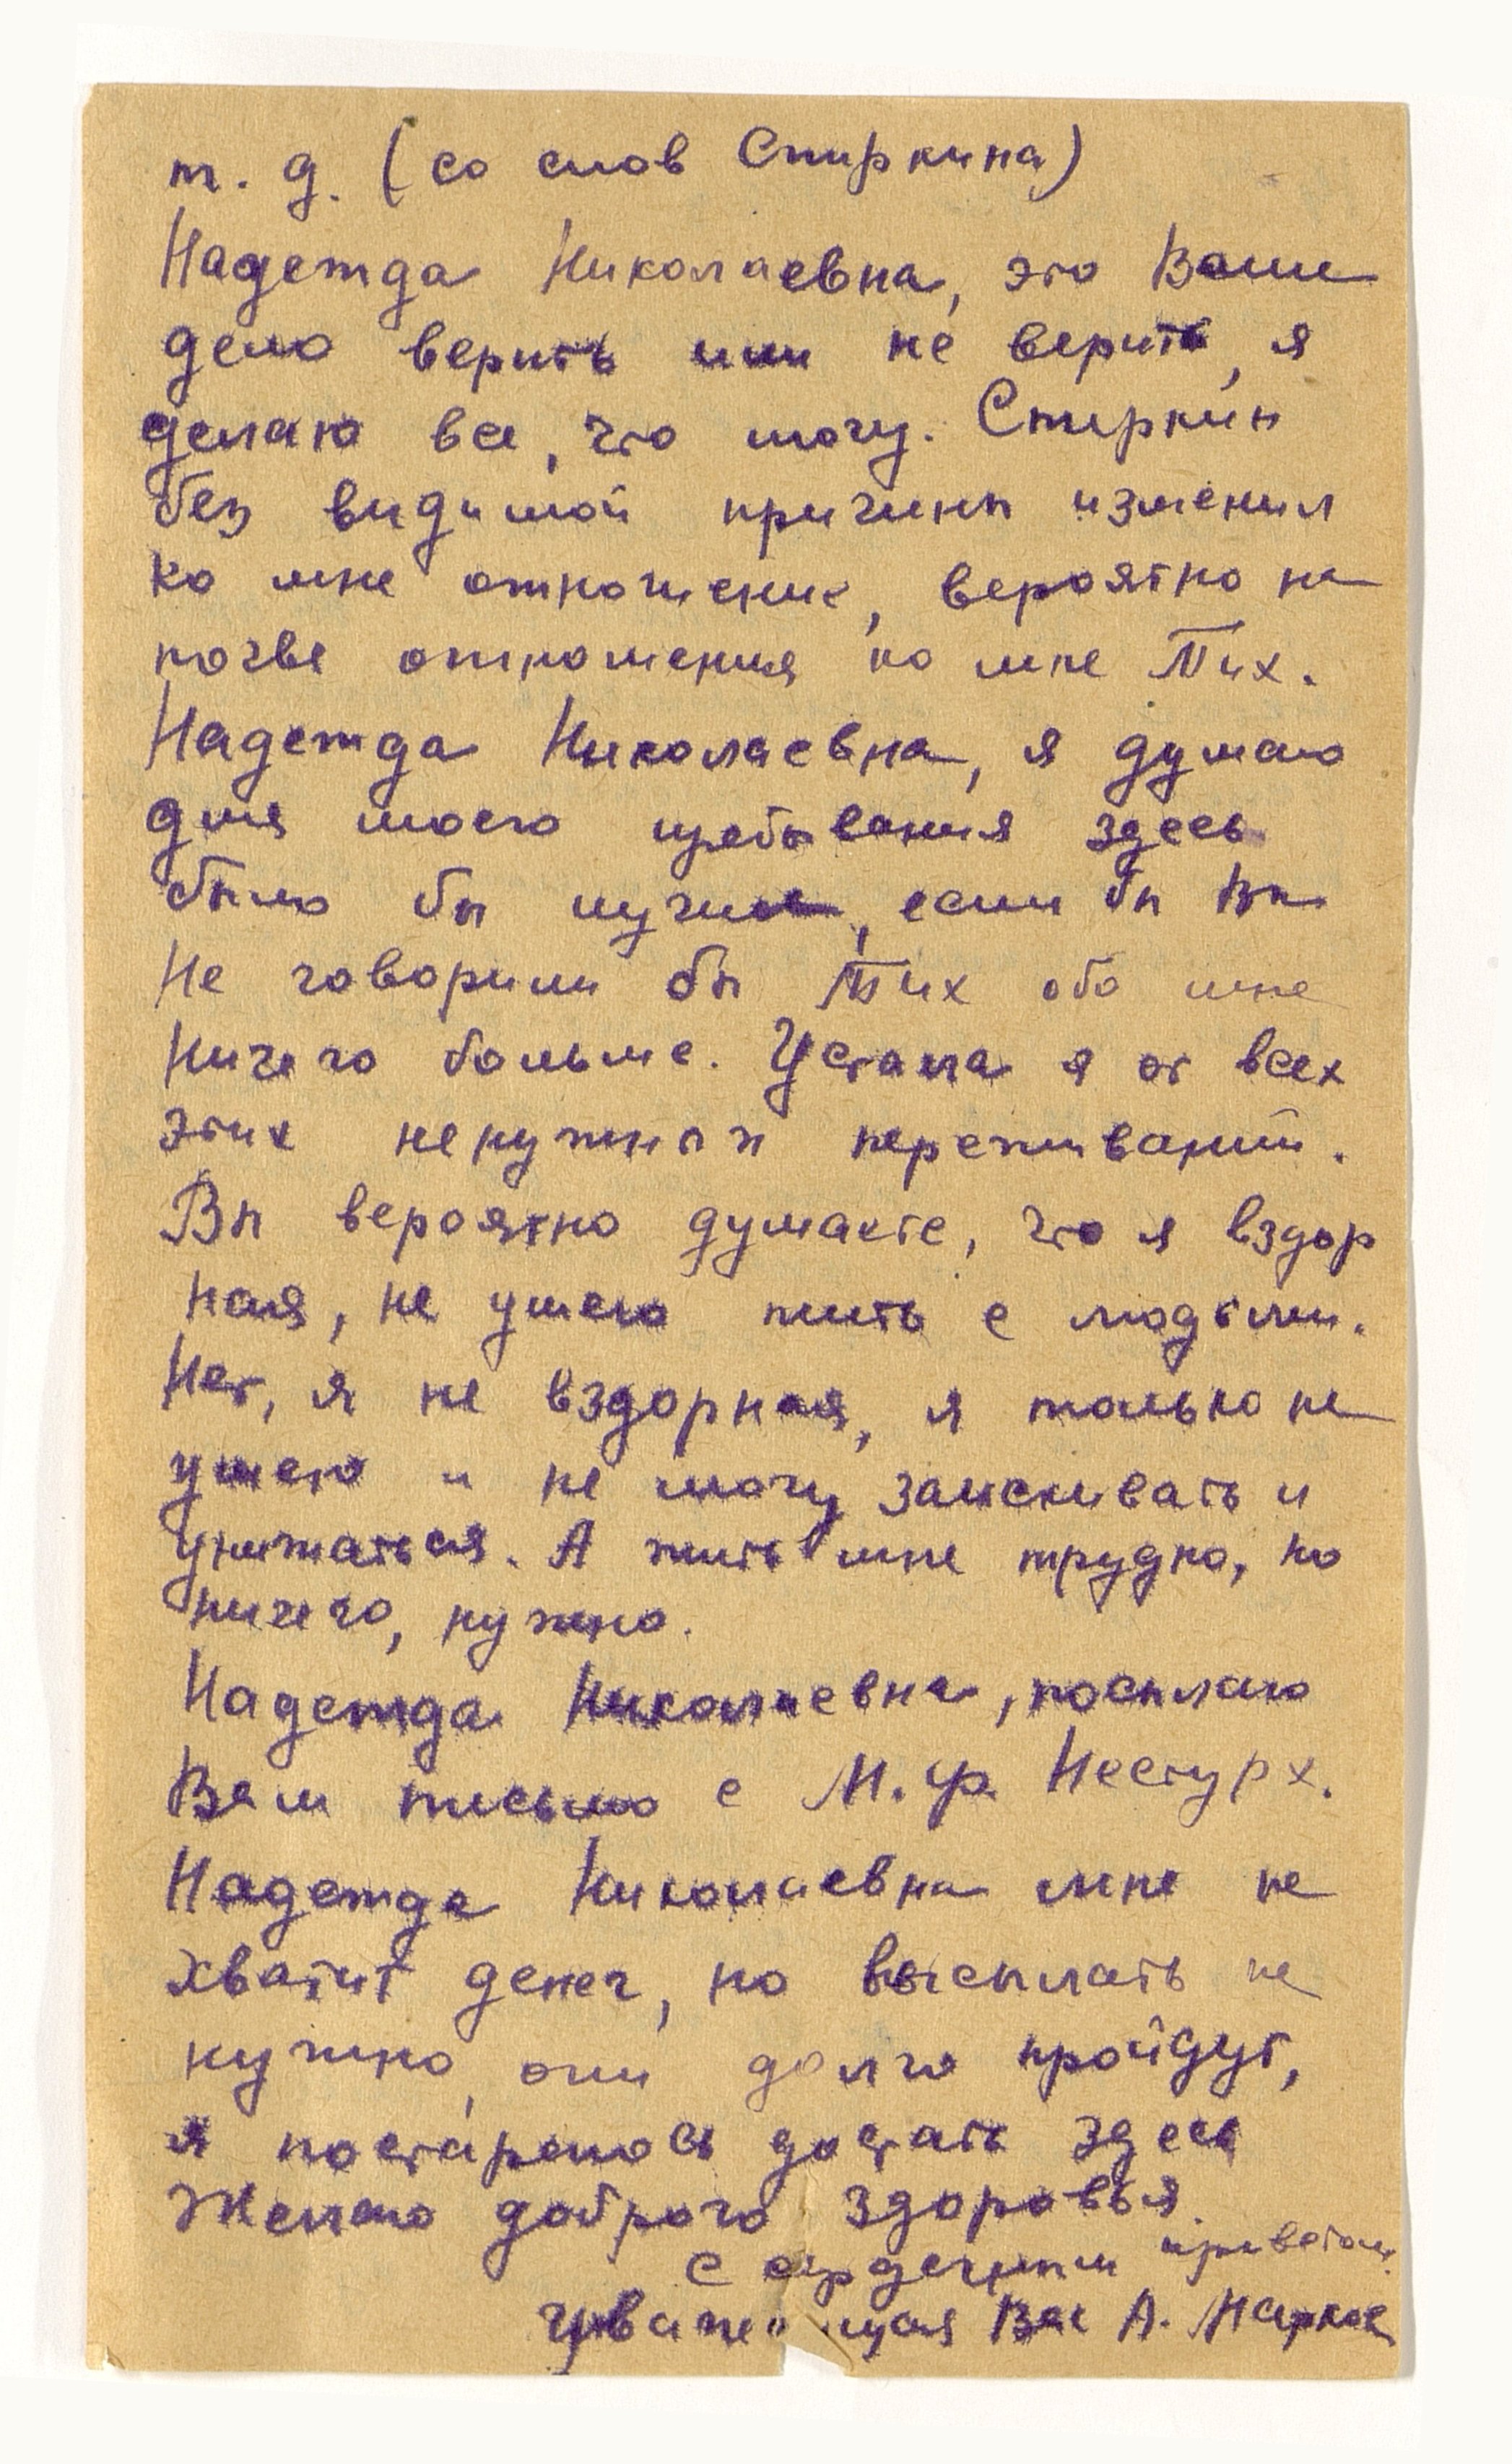 т. д. (со слов Спиркина)
Надежда Николаевна, это Ваше
дело верить или не верить, я
делаю все, что могу. Спиркин
без видимой причины изменил
ко мне отношение, вероятно на
почве отношения ко мне Тих.
Надежда Николаевна, я думаю
для моего пребывания здесь
было бы лучше, если бы Вы
не говорили бы Тих обо мне
ничего больше. Устала я от всех
этих ненужных переживаний.
Вы вероятно думаете, что я вздор
ная, не умею жить с людьми.
Нет, я не вздорная, я только не
умею и не могу заискивать и
унижаться. А жить мне трудно, но
ничего, нужно.
Надежда Николаевна, посылаю
Вам письмо с М. Ф. Нестурх.
Надежда Николаевна мне не
хватит денег, но высылать не
нужно, они долго пройдут,
я постараюсь достать здесь
Желаю доброго здоровья.
С сердечным приветом.
Уважающая Вас А.